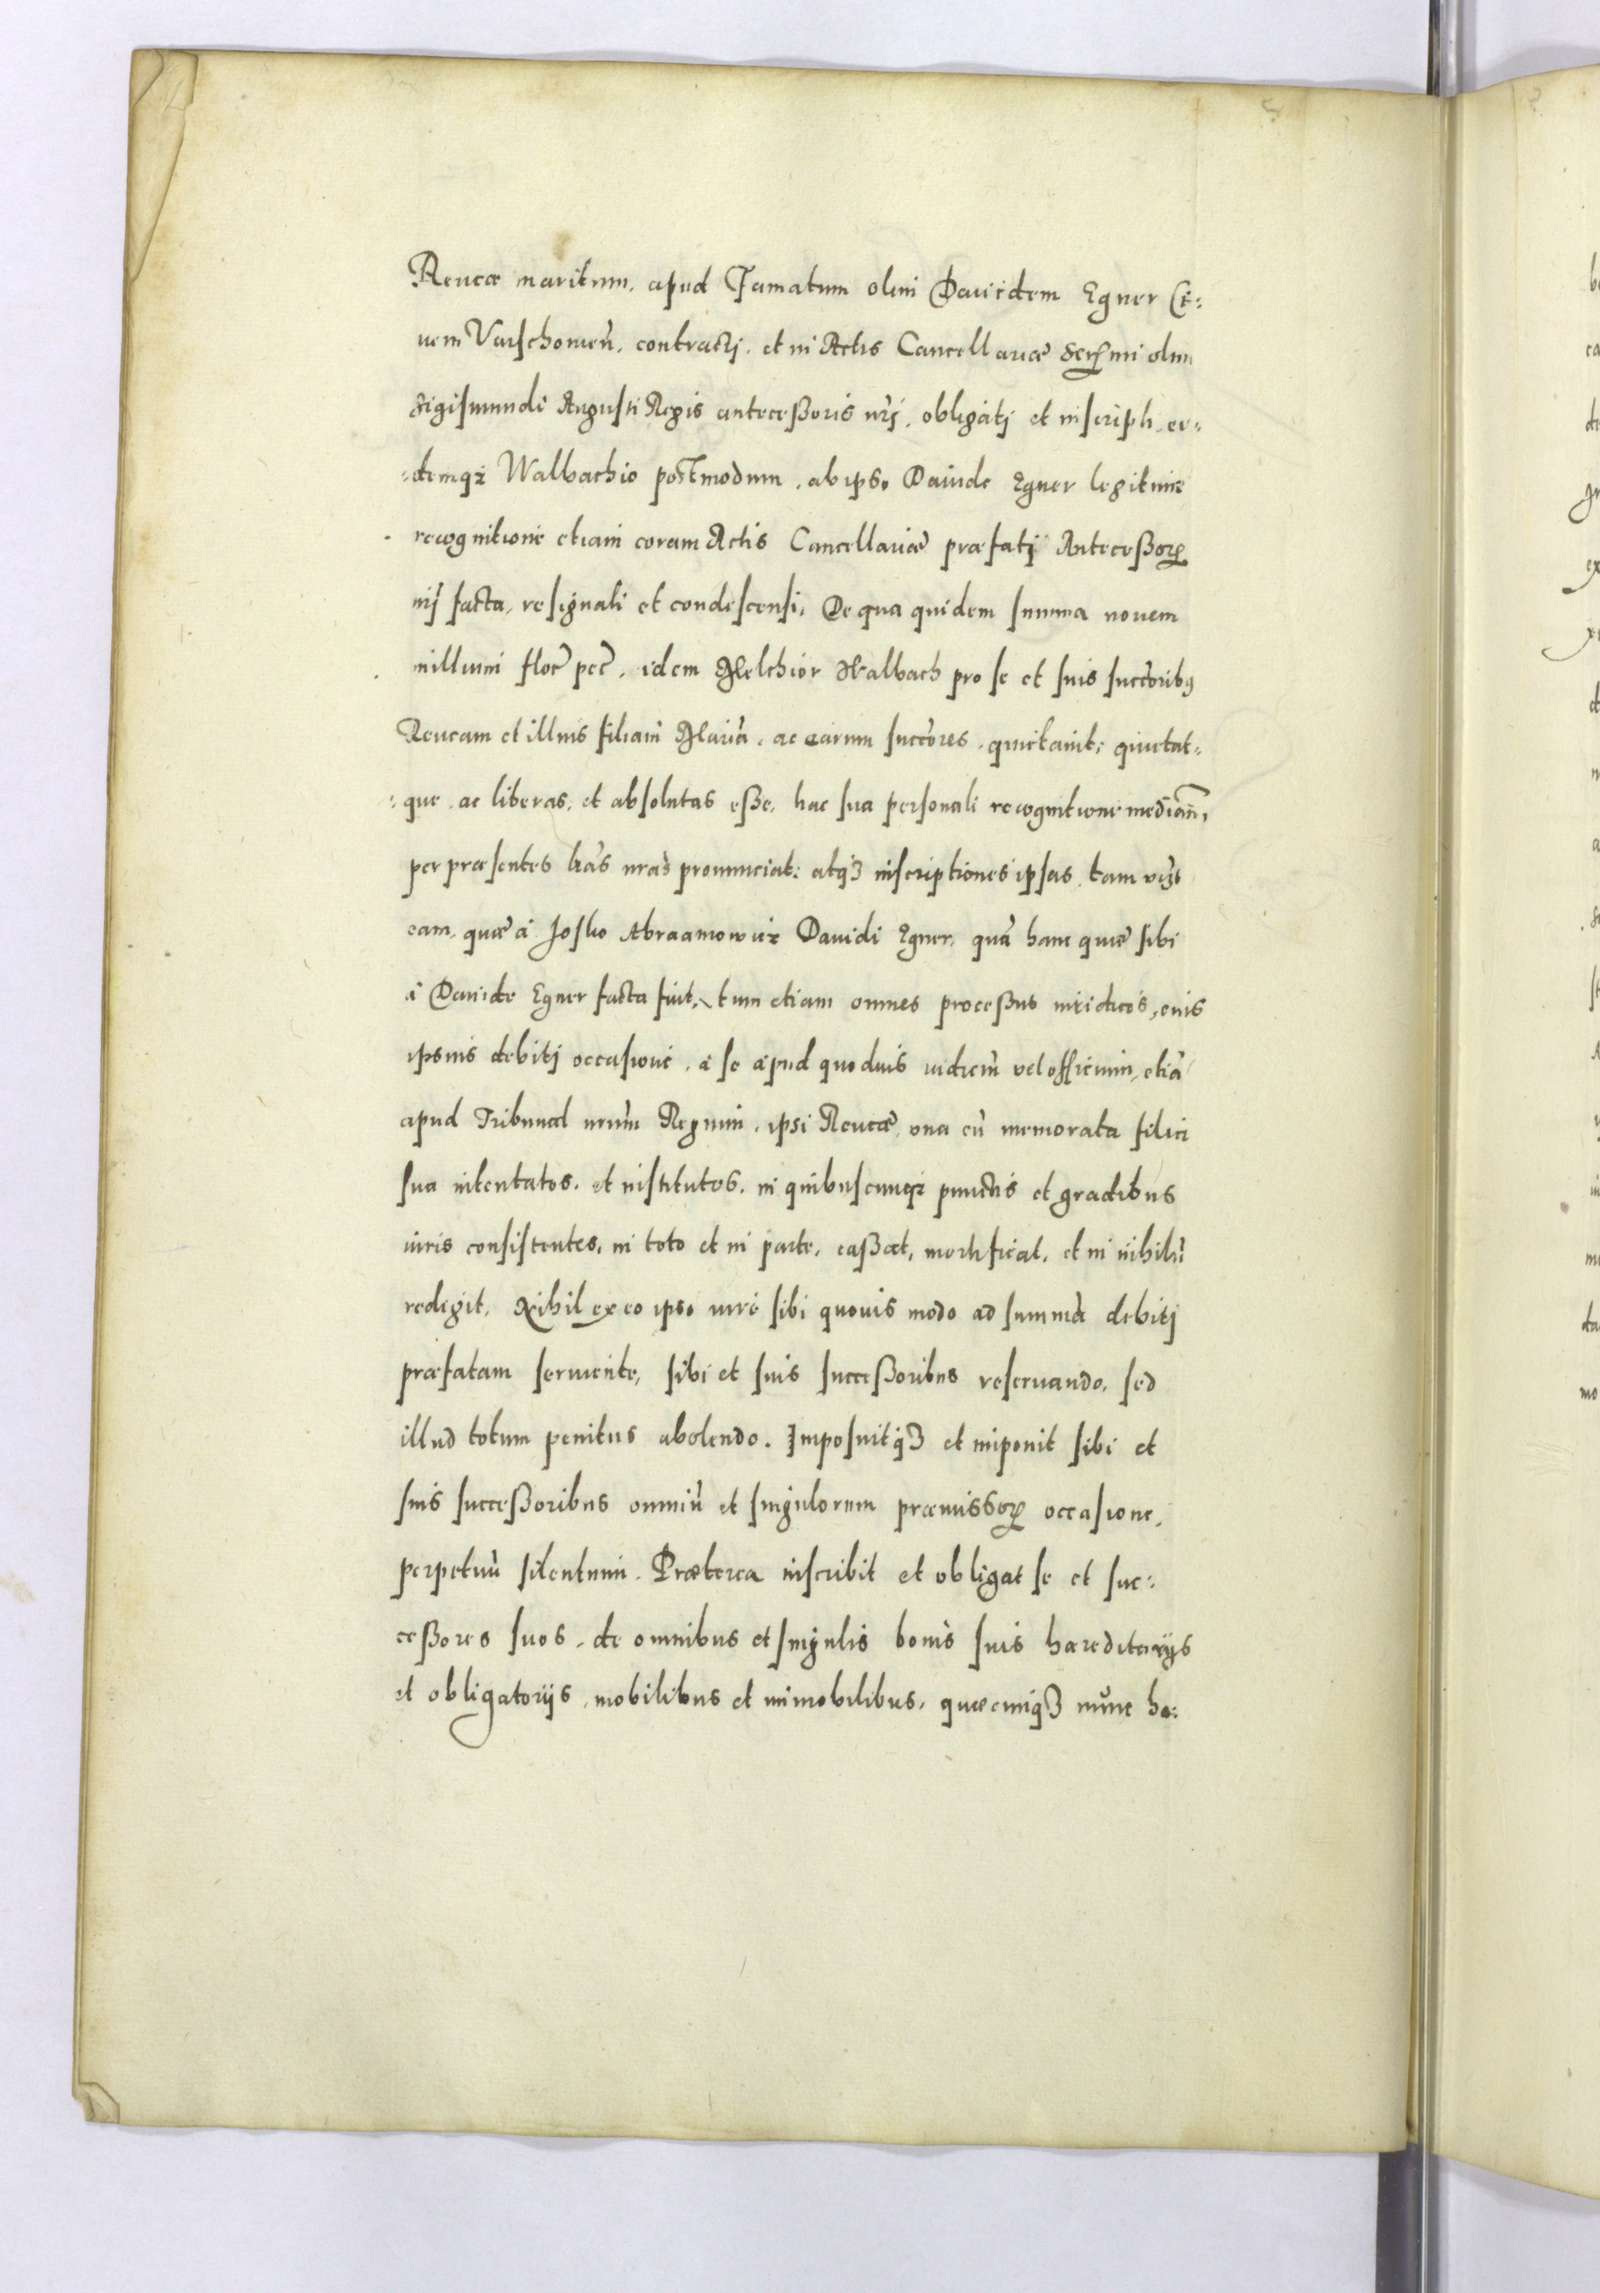 Reucæ maritum, apud Famatum olim Dauidem Egner Ci:
uem Varschouień. contracti, et in Actis Cancellariæ Serẽmi olim
Sigismundi Augusti Regis antecessoris nrj, obligatj et inscripti, ee:
:demqz Walbachio postmodum, ab ipso Dauide Egner legitime
recognitione etiam coram Actis Cancellariæ præfatj Antecessorꝝ
nrj facta, resignati et condescensi, De qua quidem summa nouem
millium floc pec, idem Melchior Walbach pro se et suis succoribꝰ
Reucam et illius filiam Mariã, ac earum succores, quietauit; quietat:
:que ac liberas, et absolutas esse, hac sua personali recognitione median̄,
per præsentes lrãs nrãs pronunciat: atqȝ inscriptiones ipsas, tam
eam, quæ à Josko Abraamowicz Dauidi Egner, quã hanc quæ sibi
à Dauide Egner facta fuit, tum etiam omnes processus iuridicos, euis
ipsius debitj occasione, a se apud quoduis iudicium vel officium, etiã
apud Tribunal nrum Regnum, ipsi Reucæ, vna cũ memorata filia
sua intentatos, et institutos, in quibuscunqz punctis et gradibus
iuris consistentes, in toto et in parte, cassat, mortificat, et in nihilũ
redegit, Nihil ex eo ipso iure sibi quouis modo ad summã debitj
præfatam seruiente, sibi et suis successoribus reseruando, sed
illud totum penitus abolendo. Imposuitqȝ et imponit sibi et
suis successoribus omniũ et singulorum præmissorꝝ occasione,
perpetuũ silentium. Præterea inscribit et obligat se et suc:
cessores suos, de omnibus et singulis bonis suis hæreditarijs
et obligatorijs, mobilibus et immobilibus, quæcunqȝ nunc ha: